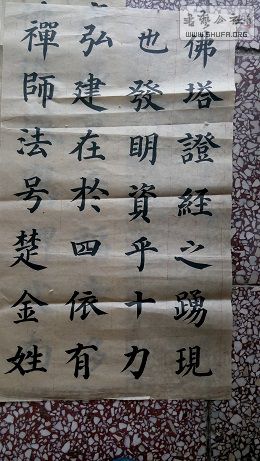 佛塔證經之踴現
也發明資乎十力
弘建在於四依有
禪師法号楚金姓
WWW.SHUFA.ORG